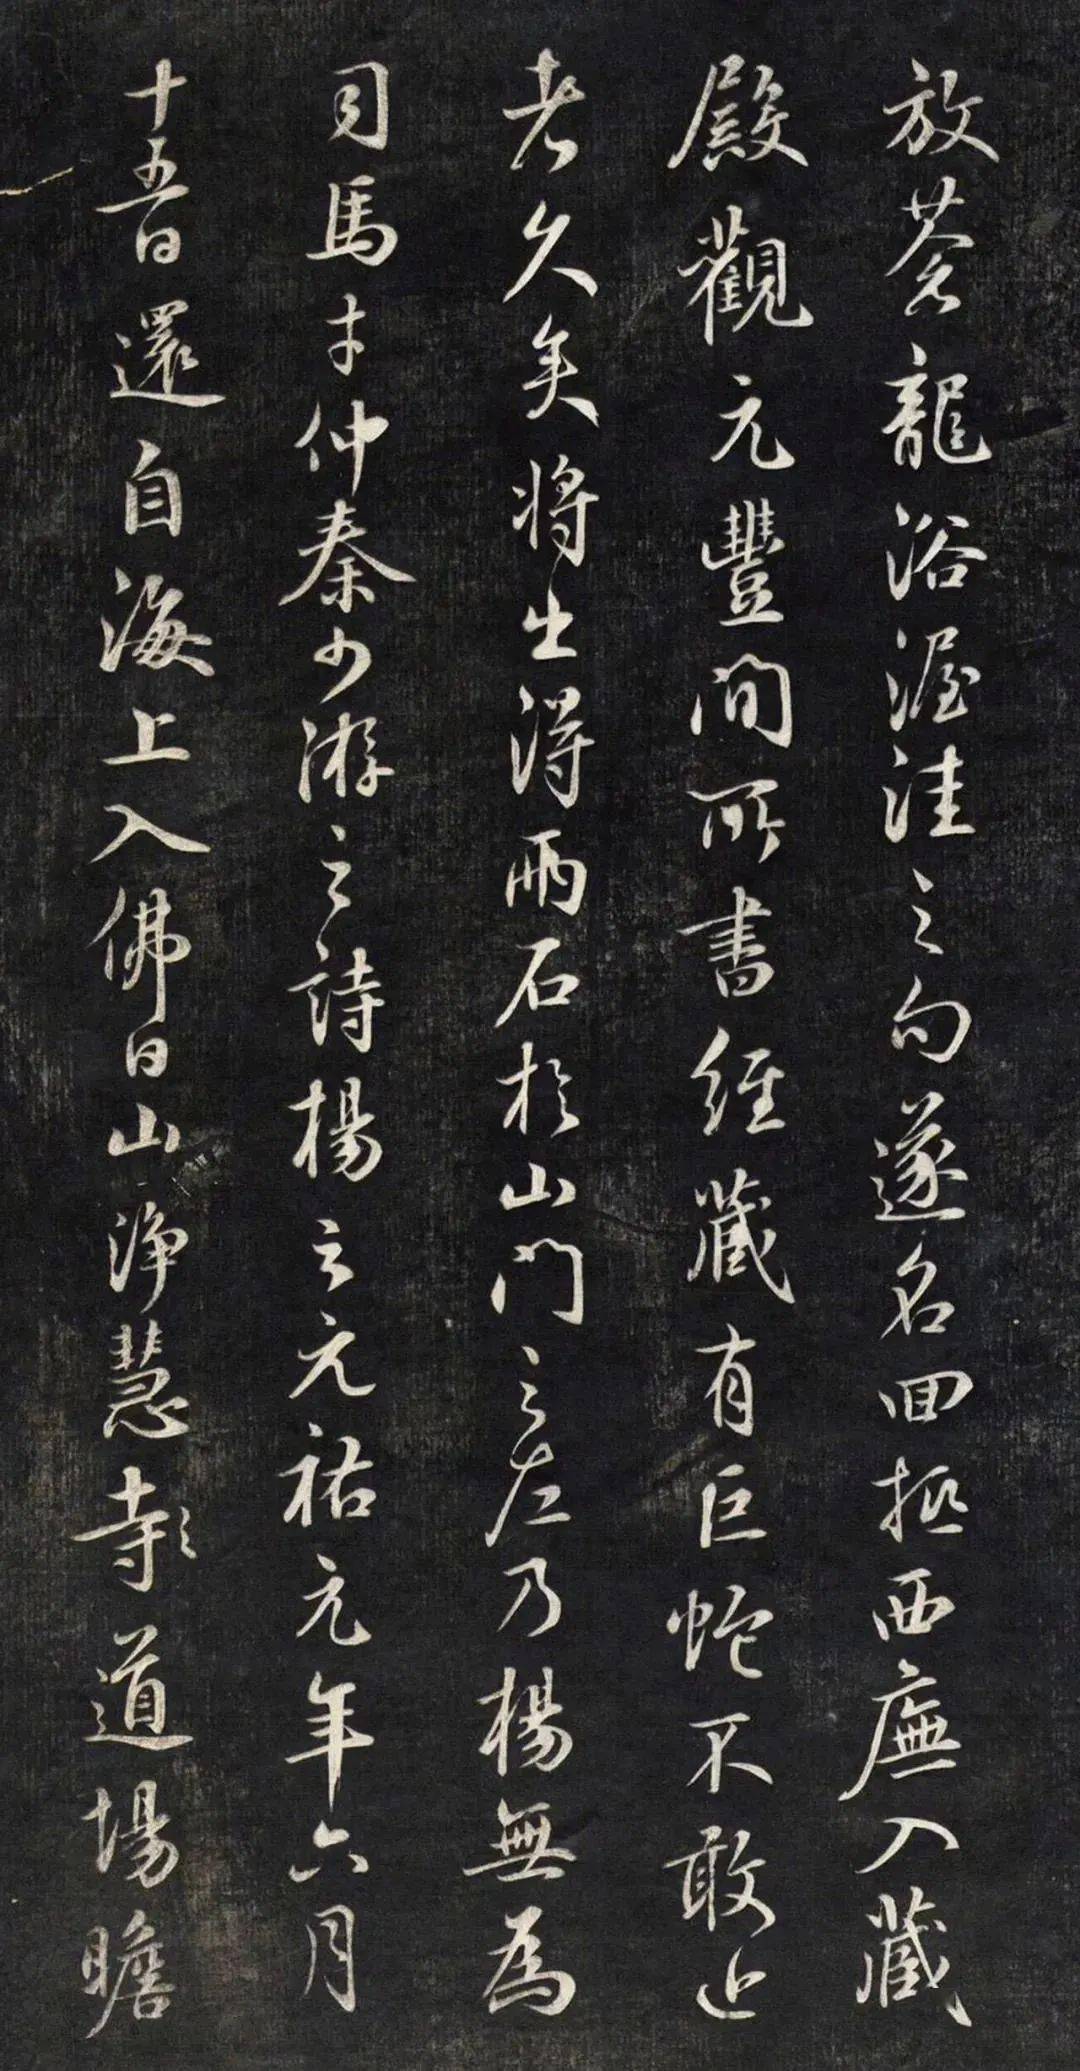 放蒼龍浴渥洼之句遂名回抵西廡入藏
殿觀元豐間所書經藏有巨蛇不敢近
老久矣將出得兩石於山門之左乃楊無為
司馬才仲秦少游之詩楊云元祐元年六月
十五日還自海上入佛日山淨慧寺々道場瞻